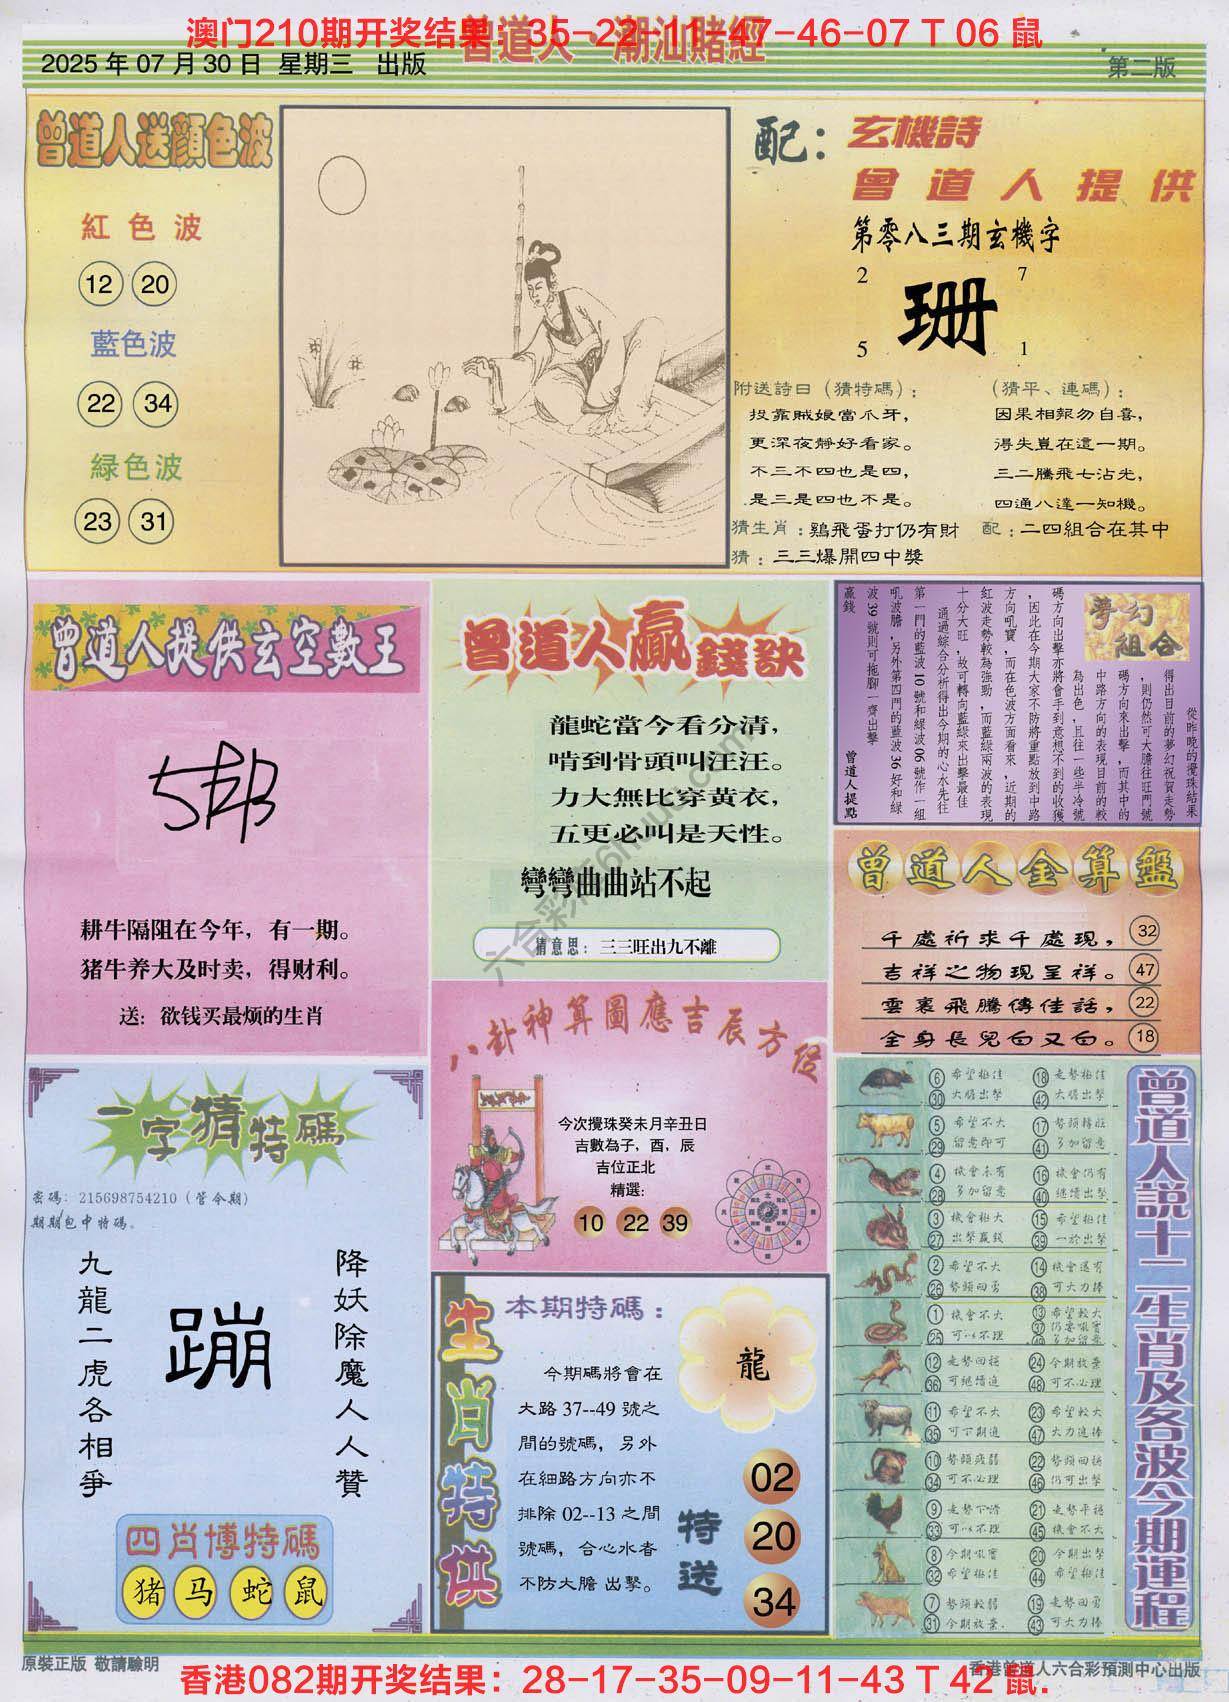 澳门210期开奖结果：35-22-11-47-46-07 T 06 鼠
曾道人·潮汕賭經
2025 年 07 月 30 日 星期三 出版
第二版
曾道人送顔色波
紅色波
12 20
藍色波
22 34
緑色波
23 31
配：玄機詩
曾道人提供
第零八三期玄機字
2 7
珊
5 1
附送詩日（猜特碼）：
投靠賊娘當爪牙，
更深夜靜好看家。
不三不四也是四，
是三是四也不是。
（猜平、連碼）：
因果相報勿自喜，
得失豈在這一期。
三二騰飛七沾光，
四通八達一知機。
猜生肖：鷄飛蛋打仍有財
配：二四組合在其中
猜：三三爆開四中獎
曾道人提供玄空數王
耕牛隔阻在今年，有一期。
猪牛养大及时卖，得财利。
送：欲钱买最烦的生肖
曾道人贏錢訣
龍蛇當今看分清，
啃到骨頭叫汪汪。
力大無比穿黄衣，
五更必叫是天性。
彎彎曲曲站不起
猜意思：三三旺出九不離
夢幻組合
從昨晚的攪珠結果
得出目前的夢幻祝賀走勢
，則仍然可大膽往旺門號
碼方向來出擊，而其中的
中路方向的表現目前的較
為出色，且往一些半冷號
碼方向出擊亦將會手到意想不到的收獲
，因此在今期大家不防將重點放到中路
方向吼寶，而在色波方面看來，近期的
紅波走勢較為強勁，而藍綠兩波的表現
十分大旺，故可轉向藍綠來出擊最佳
通過綜合分析得出今期的心水先往
第一門的藍波 10 號和綠波 06 號作一組
吼波膽，另外第四門的藍波 36 好和綠
波 39 號則可拖腳一齊出擊
贏錢
曾道人提點
曾道人金算盤
千處祈求千處現， 32
吉祥之物現呈祥。 47
雲裏飛騰傳佳話， 22
全身長兒白又白。 18
一字猜特碼
密碼：215698754210（管令期）
期期包中特碼。
九龍二虎各相爭
蹦
降妖除魔人人贊
四肖博特碼
猪 马 蛇 鼠
八卦神算圖應吉辰方位
今次攪珠癸未月辛丑日
吉數為子，酉，辰
吉位正北
精選：
10 22 39
生肖特供
本期特碼：
龍
今期碼將會在
大路 37--49 號之
間的號碼，另外
在細路方向亦不
排除 02--13 之間
號碼，合心水者
不防大膽 出擊。
特送
02
20
34
曾道人説十二生肖及各波今期運程
6 希望極佳 18 走勢極佳
30 大膽出擊 42 大膽出擊
5 希望不大 17 勢頭轉旺
29 留意即可 41 多加留意
4 機會未有 16 機會仍有
28 多加留意 40 繼續出擊
3 機會極大 15 希望極佳
27 出擊贏錢 39 一於出擊
2 希望不大 14 機會還有
26 勢頭回勇 38 可大力捧
1 機會不大 13 希望較大
25 可以不理 37 仍要吼實
49 多加留意
12 走勢回穩 24 今期放棄
36 可繼續追 48 可不必理
11 希望不大 23 希望較大
35 可下期追 47 大力追捧
10 勢頭疲弱 22 勢頭回穩
34 可不必理 46 仍可出擊
9 走勢下滑 21 走勢平穩
33 可以不理 45 機會不大
8 今期吼實 20 今期出擊
32 希望極佳 44 希望極佳
7 勢頭較弱 19 走勢回勇
31 今期放棄. 43 可大力捧
原裝正版 敬請驗明
香港曾道人六合彩預測中心出版
香港082期开奖结果：28-17-35-09-11-43 T 42 鼠.